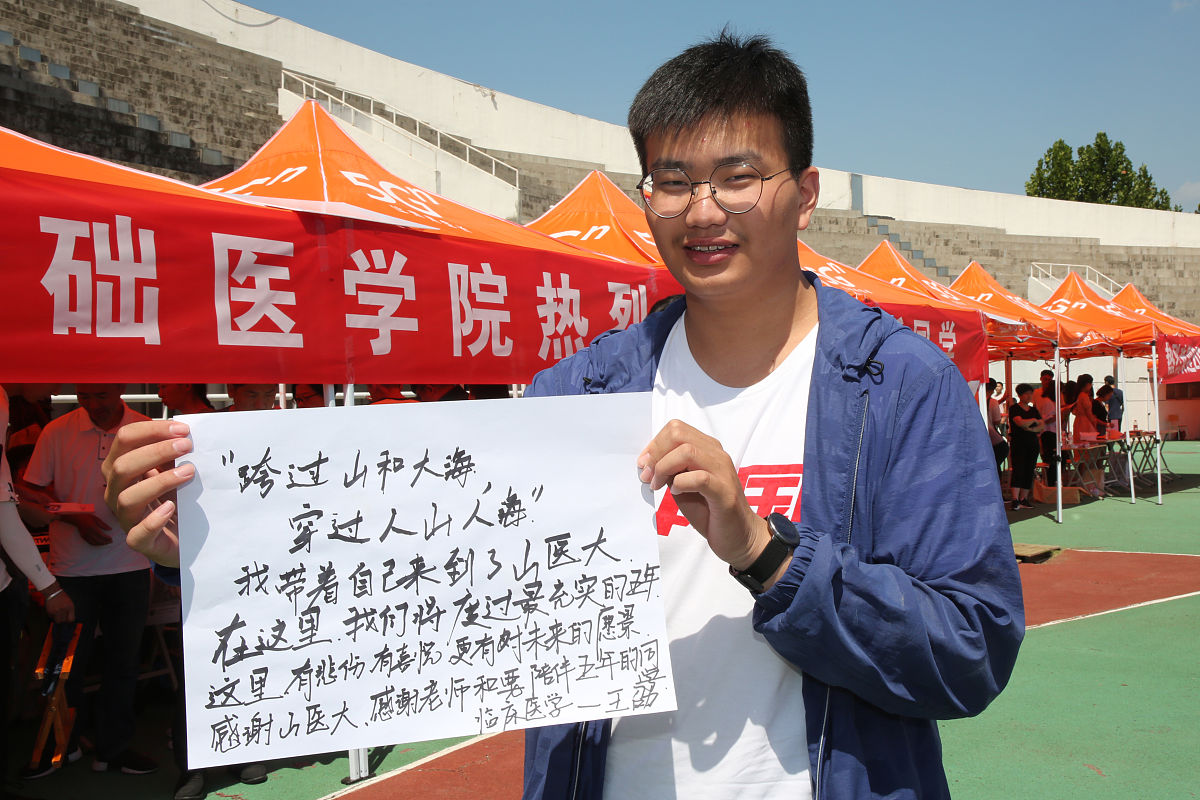 础医学院热烈
同学
5G
"跨过山和大海,
穿过人山人海"
我带着自己来到了山医大.
在这里.我们将度过最充实的五年.
这里有悲伤.有喜悦.更有对未来的愿景.
感谢山医大、感谢老师和要陪伴五年的同学.
临床医学—王荔